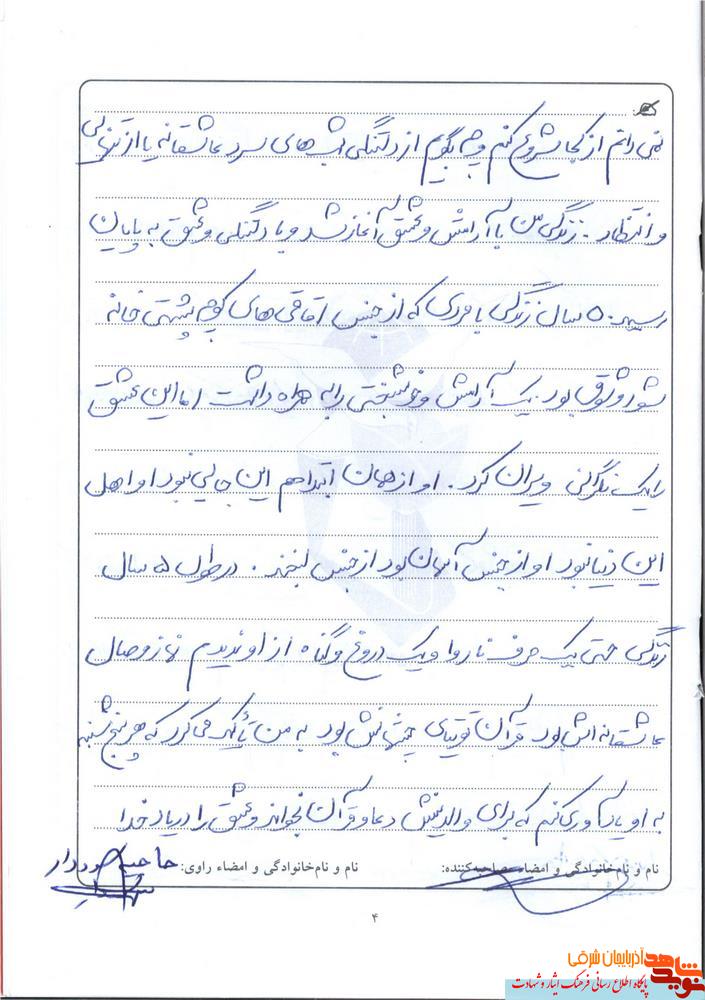 نمی دانم از کجا شروع کنم و چه بگویم از دلتنگی شب های سرد عاشقانه یا از تنهایی
و انتظار. زندگی من با آرامش و عشق آغاز شد و با دلتنگی و عشق به پایان
رسید. ۵ سال زندگی با مردی که از جنس اقاقی های کوچه پشتی خانه
شور و شوق بود. یک آرامش و خوشبختی را به همراه داشت اما این عشق
را یک نگرانی ویران کرد. او از همان ابتدا هم این جایی نبود او اهل
این دنیا نبود او از جنس آسمان بود از جنس لبخند. در طول ۵ سال
زندگی حتی یک حرف ناروا و یک دروغ و گناه از او ندیدم نماز وصال
عاشقانه اش بود قرآن توتیای چشمانش بود به من تأکید می کرد که هر پنج شنبه
به او یادآوری کنم که برای والدینش دعا و قرآن بخواند و عشق را در یاد خدا
نام و نام خانوادگی و امضاء مصاحبه کننده:
نام و نام خانوادگی و امضاء راوی:
۴
نوید شاهد آذربایجان شرقی
پایگاه اطلاع رسانی فرهنگ ایثار و شهادت